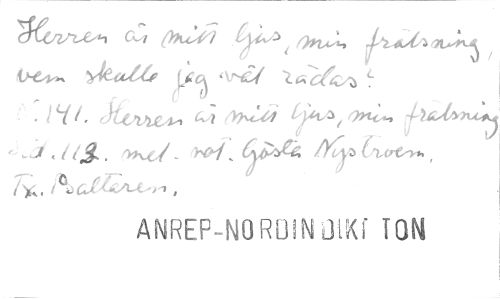 Herren är mitt ljus, min frälsning,
vem skulle jag väl rädas?
N. 141. Herren är mitt ljus, min frälsning
Sid. 113. mel. not. Gösta Nystroem.
Tx. Psaltaren.
ANREP-NORDIN DIKT TON